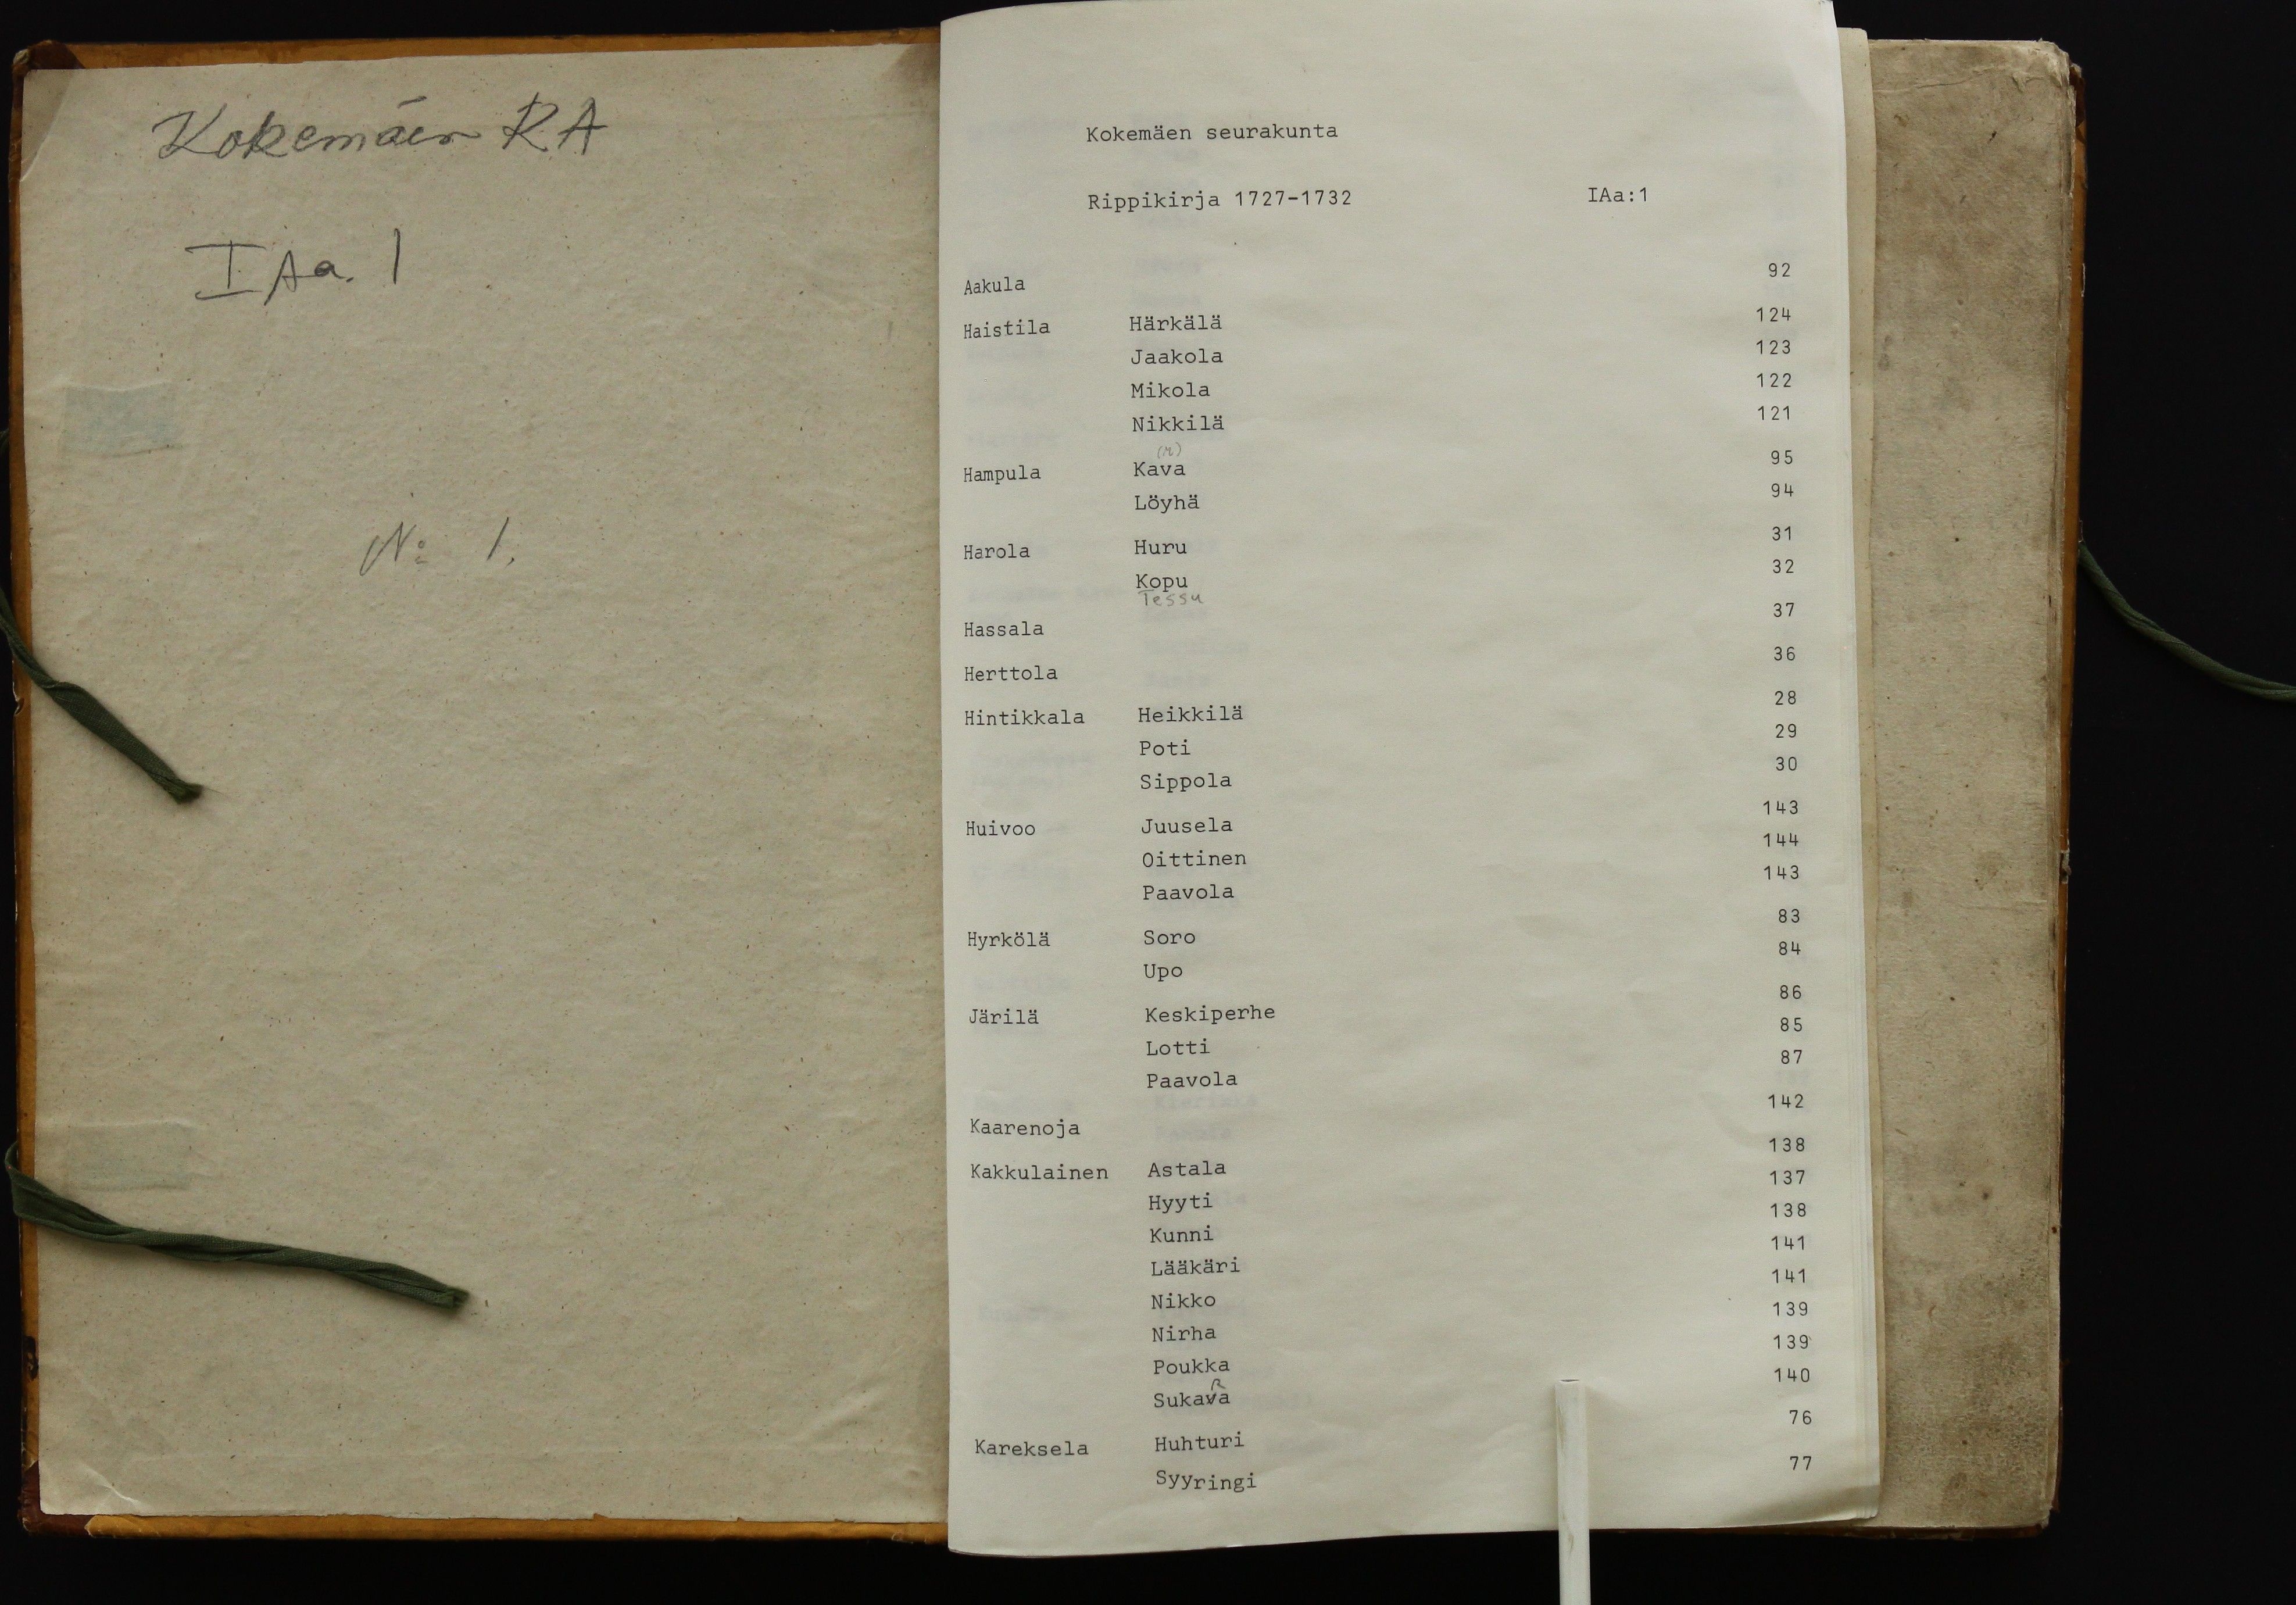 Kokemäen RA
I Aa. 1
No 1.
Kokemäen seurakunta
Rippikirja 1727-1732 IAa:1
Aakula 92
Haistila Härkälä 124
Jaakola 123
Mikola 122
Nikkilä 121
(r)
Hampula Kava 95
Löyhä 94
Harola Huru 31
Kopu 32
Tessu
Hassala 37
Herttola 36
Hintikkala Heikkilä 28
Poti 29
Sippola 30
Huivoo Juusela 143
Oittinen 144
Paavola 143
Hyrkölä Soro 83
Upo 84
Järilä Keskiperhe 86
Lotti 85
Paavola 87
Kaarenoja 142
Kakkulainen Astala 138
Hyyti 137
Kunni 138
Lääkäri 141
Nikko 141
Nirha 139
Poukka 139
R
Sukava 140
Kareksela Huhturi 76
Syyringi 77